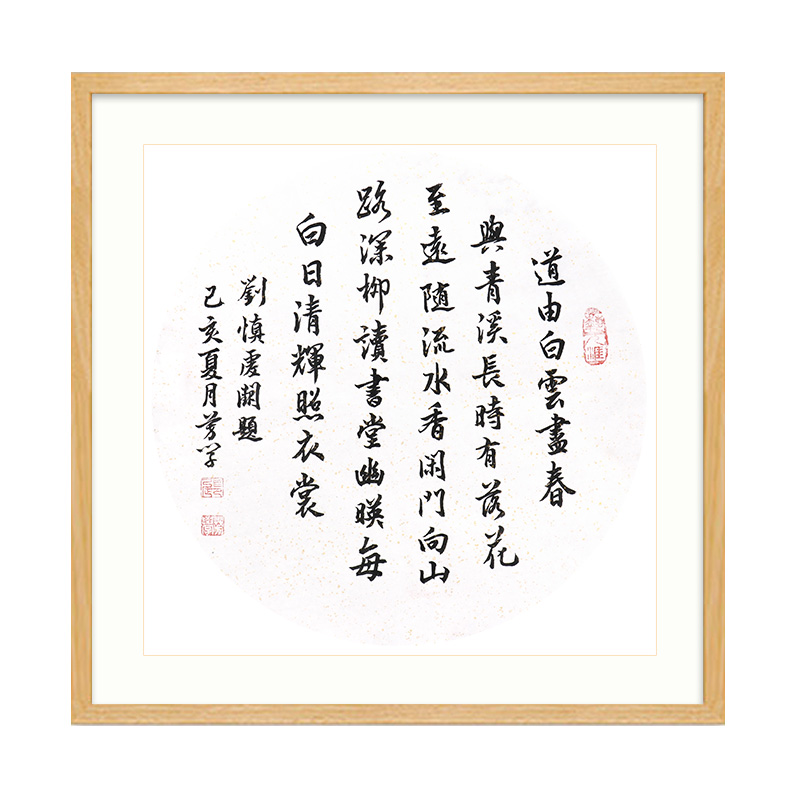 道由白雲盡春
與青溪長時有落花
至遠隨流水香閑門向山
路深柳讀書堂幽暎每
白日清輝照衣裳
劉慎虛闕題
己亥夏月